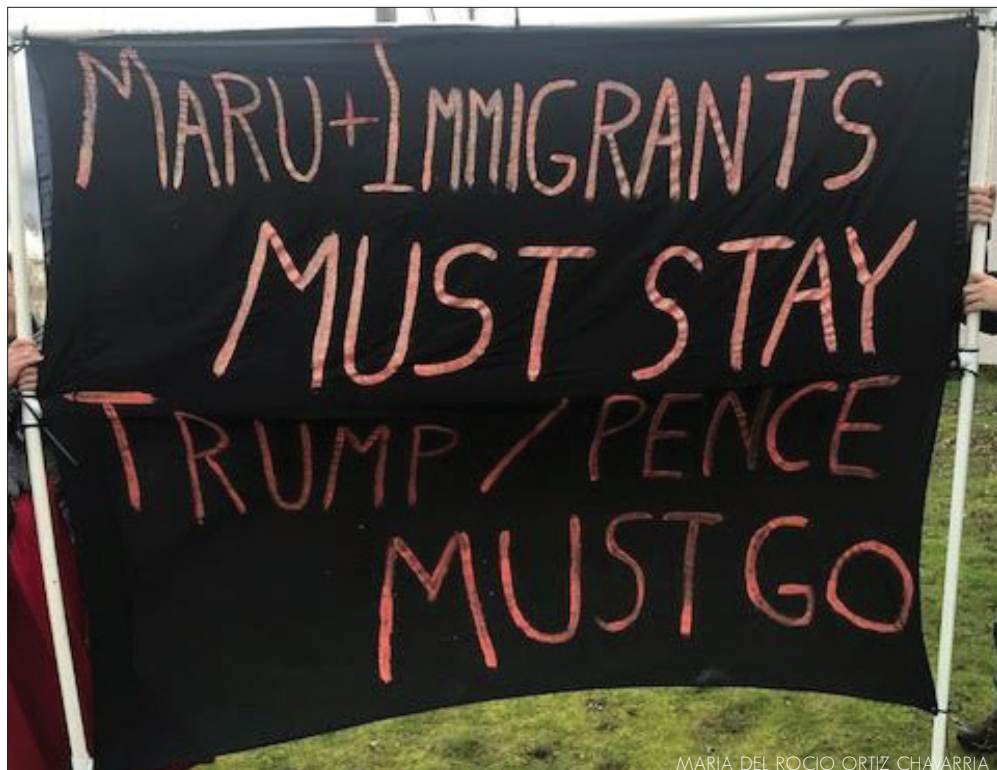 MARU + IMMIGRANTS
MUST STAY
TRUMP / PENCE
MUST GO
MARIA DEL ROCIO ORTIZ CHAVARRIA